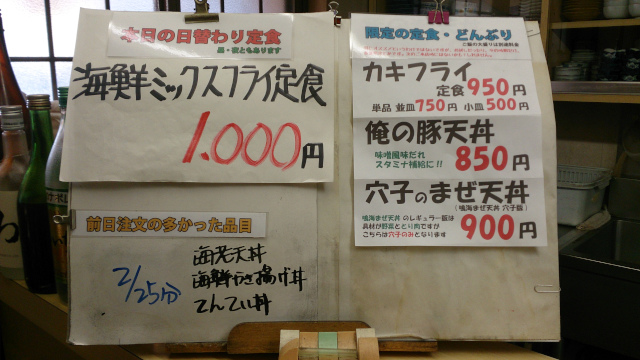 本日の日替わり定食
昼・夜ともあります
海鮮ミックスフライ定食
1.000円
前日注文の多かった品目
2/25分
海老天丼
海鮮かき揚げ丼
てんてい丼
限定の定食・どんぶり
ご飯の大盛りは別途料金
カキフライ
定食950円
単品 並皿750円 小皿500円
俺の豚天丼
味噌風味だれ
スタミナ補給に!!
850円
穴子のまぜ天丼
(鳴海まぜ天丼 穴子飯)
鳴海まぜ天丼 のレギュラー飯は
具材が野菜ととり肉ですが
こちらは穴子のみとなります
900円